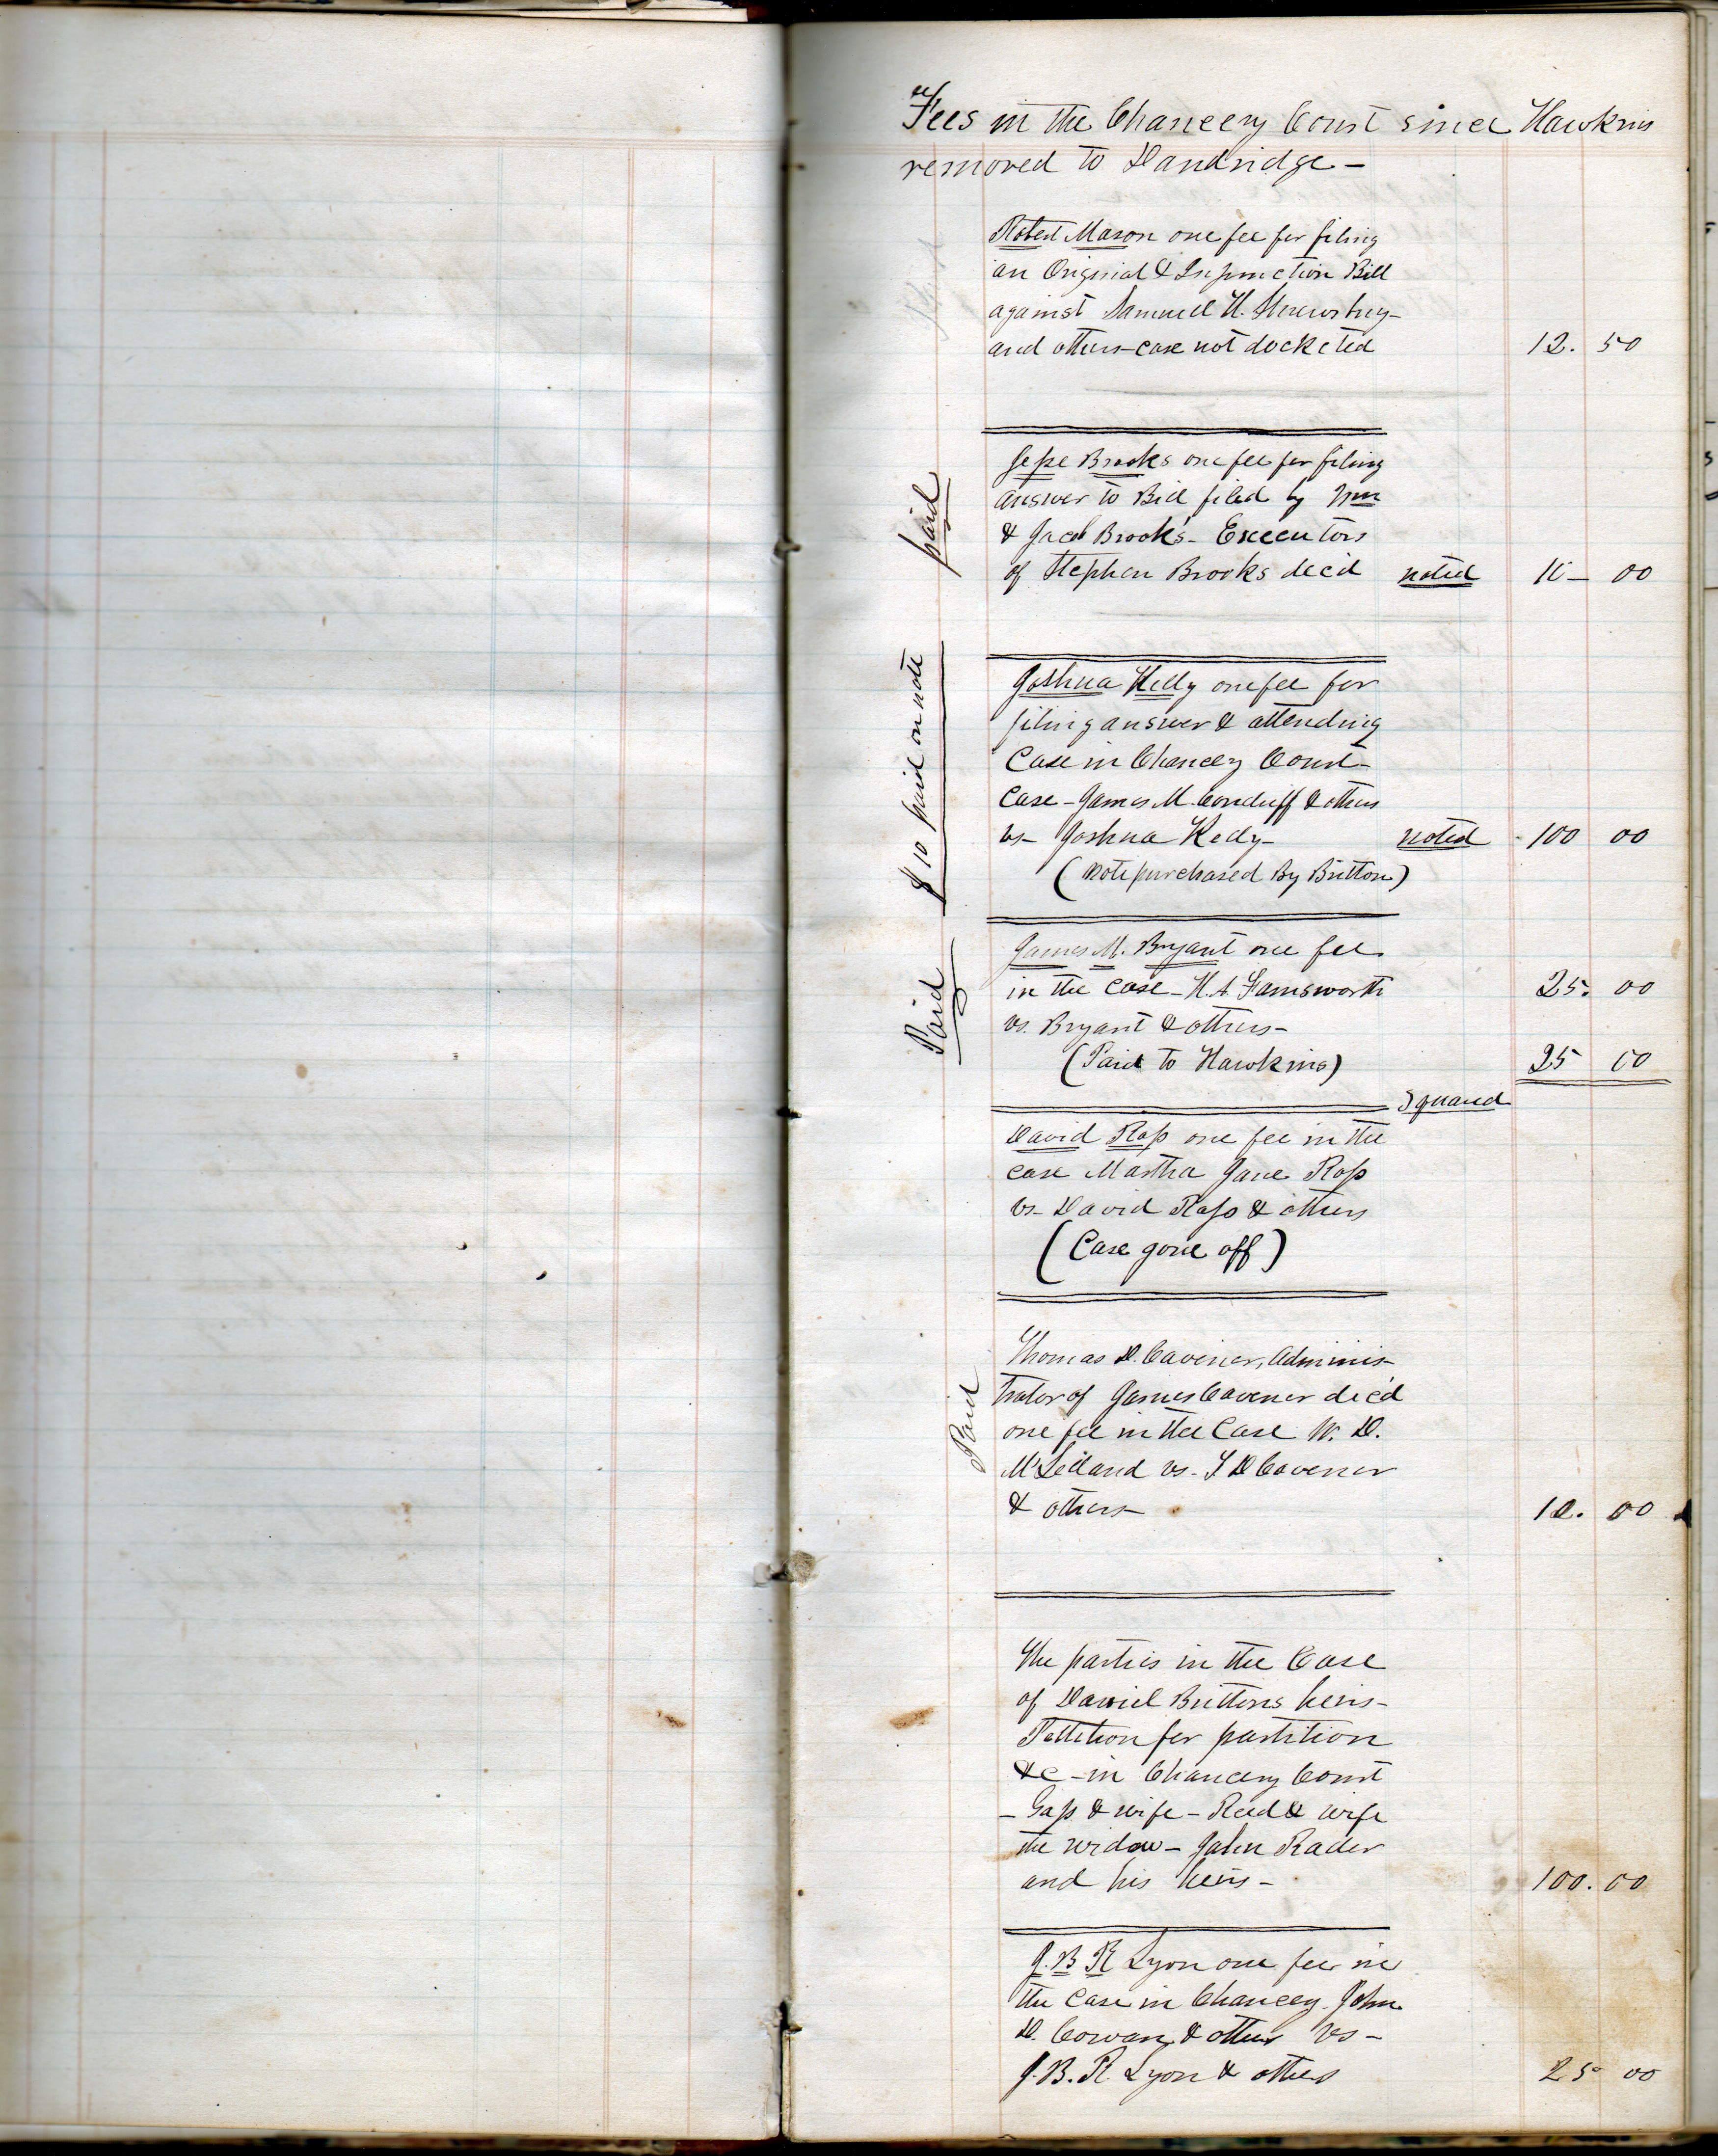 Fees in the Chancery Court since Hawkins
removed to Dandridge -
Robert Mason one fee for filing
an Original & Injunction Bill
against Samuel H. Shrewsbury -
and others - case not docketed 12. 50
paid
Jesse Brooks one fee for filing
answer to Bill filed by Wm
& Jacob Brook's - Executors
of Stephen Brooks dec'd noted 10 - 00
$10 paid on note
Joshua Kelly one fee for
filing answer & attending
Case in Chancery Court -
Case - James M. Conduff & others
vs - Joshua Kelly - noted 100 00
(note purchased By Britton)
Paid
James M. Bryant one fee
in the case - H. A. Farnsworth 25. 00
vs. Bryant & others -
(Paid to Hawkins) 25 00
Squared
David Ross one fee in the
case Martha Jane Ross
vs - David Ross & others
(Case gone off)
Paid
Thomas D. Cavener, Adminis-
trator of James Cavener dec'd
one fee in the Case W. D.
McLelland vs. T D Cavener
& others - 10. 00
The parties in the Case
of Daniel Brittons heirs -
Petition for partition
&c - in Chancery Court
- Gass & wife - Reed & wife
the widow - John Rader
and his heirs - 100. 00
J. B R Lyon one fee in
the case in Chancery. John
D. Cowan & others vs -
J. B. R. Lyon & others 25 00